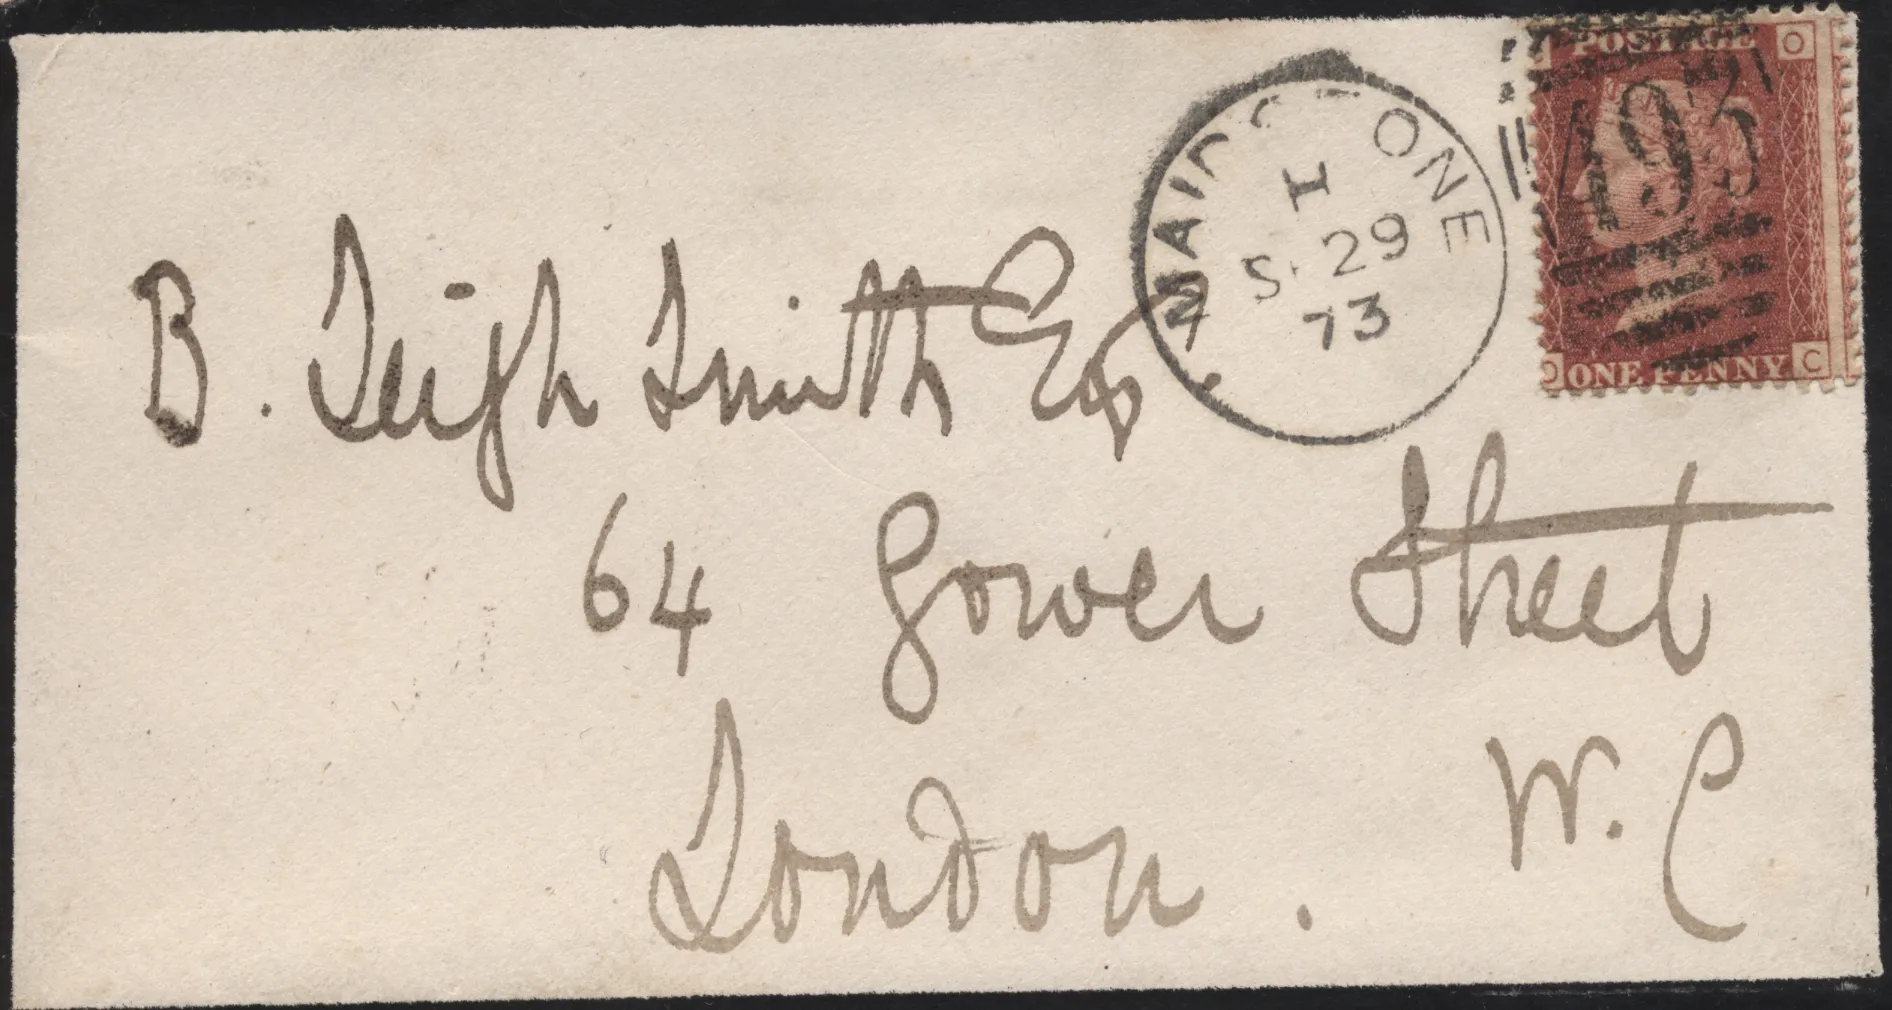 POSTAGE
O
493
MAIDSTONE
I
S. 29
73
ONE PENNY
C
B. Leigh Smith Esq
64 Gower Street
London. W. C